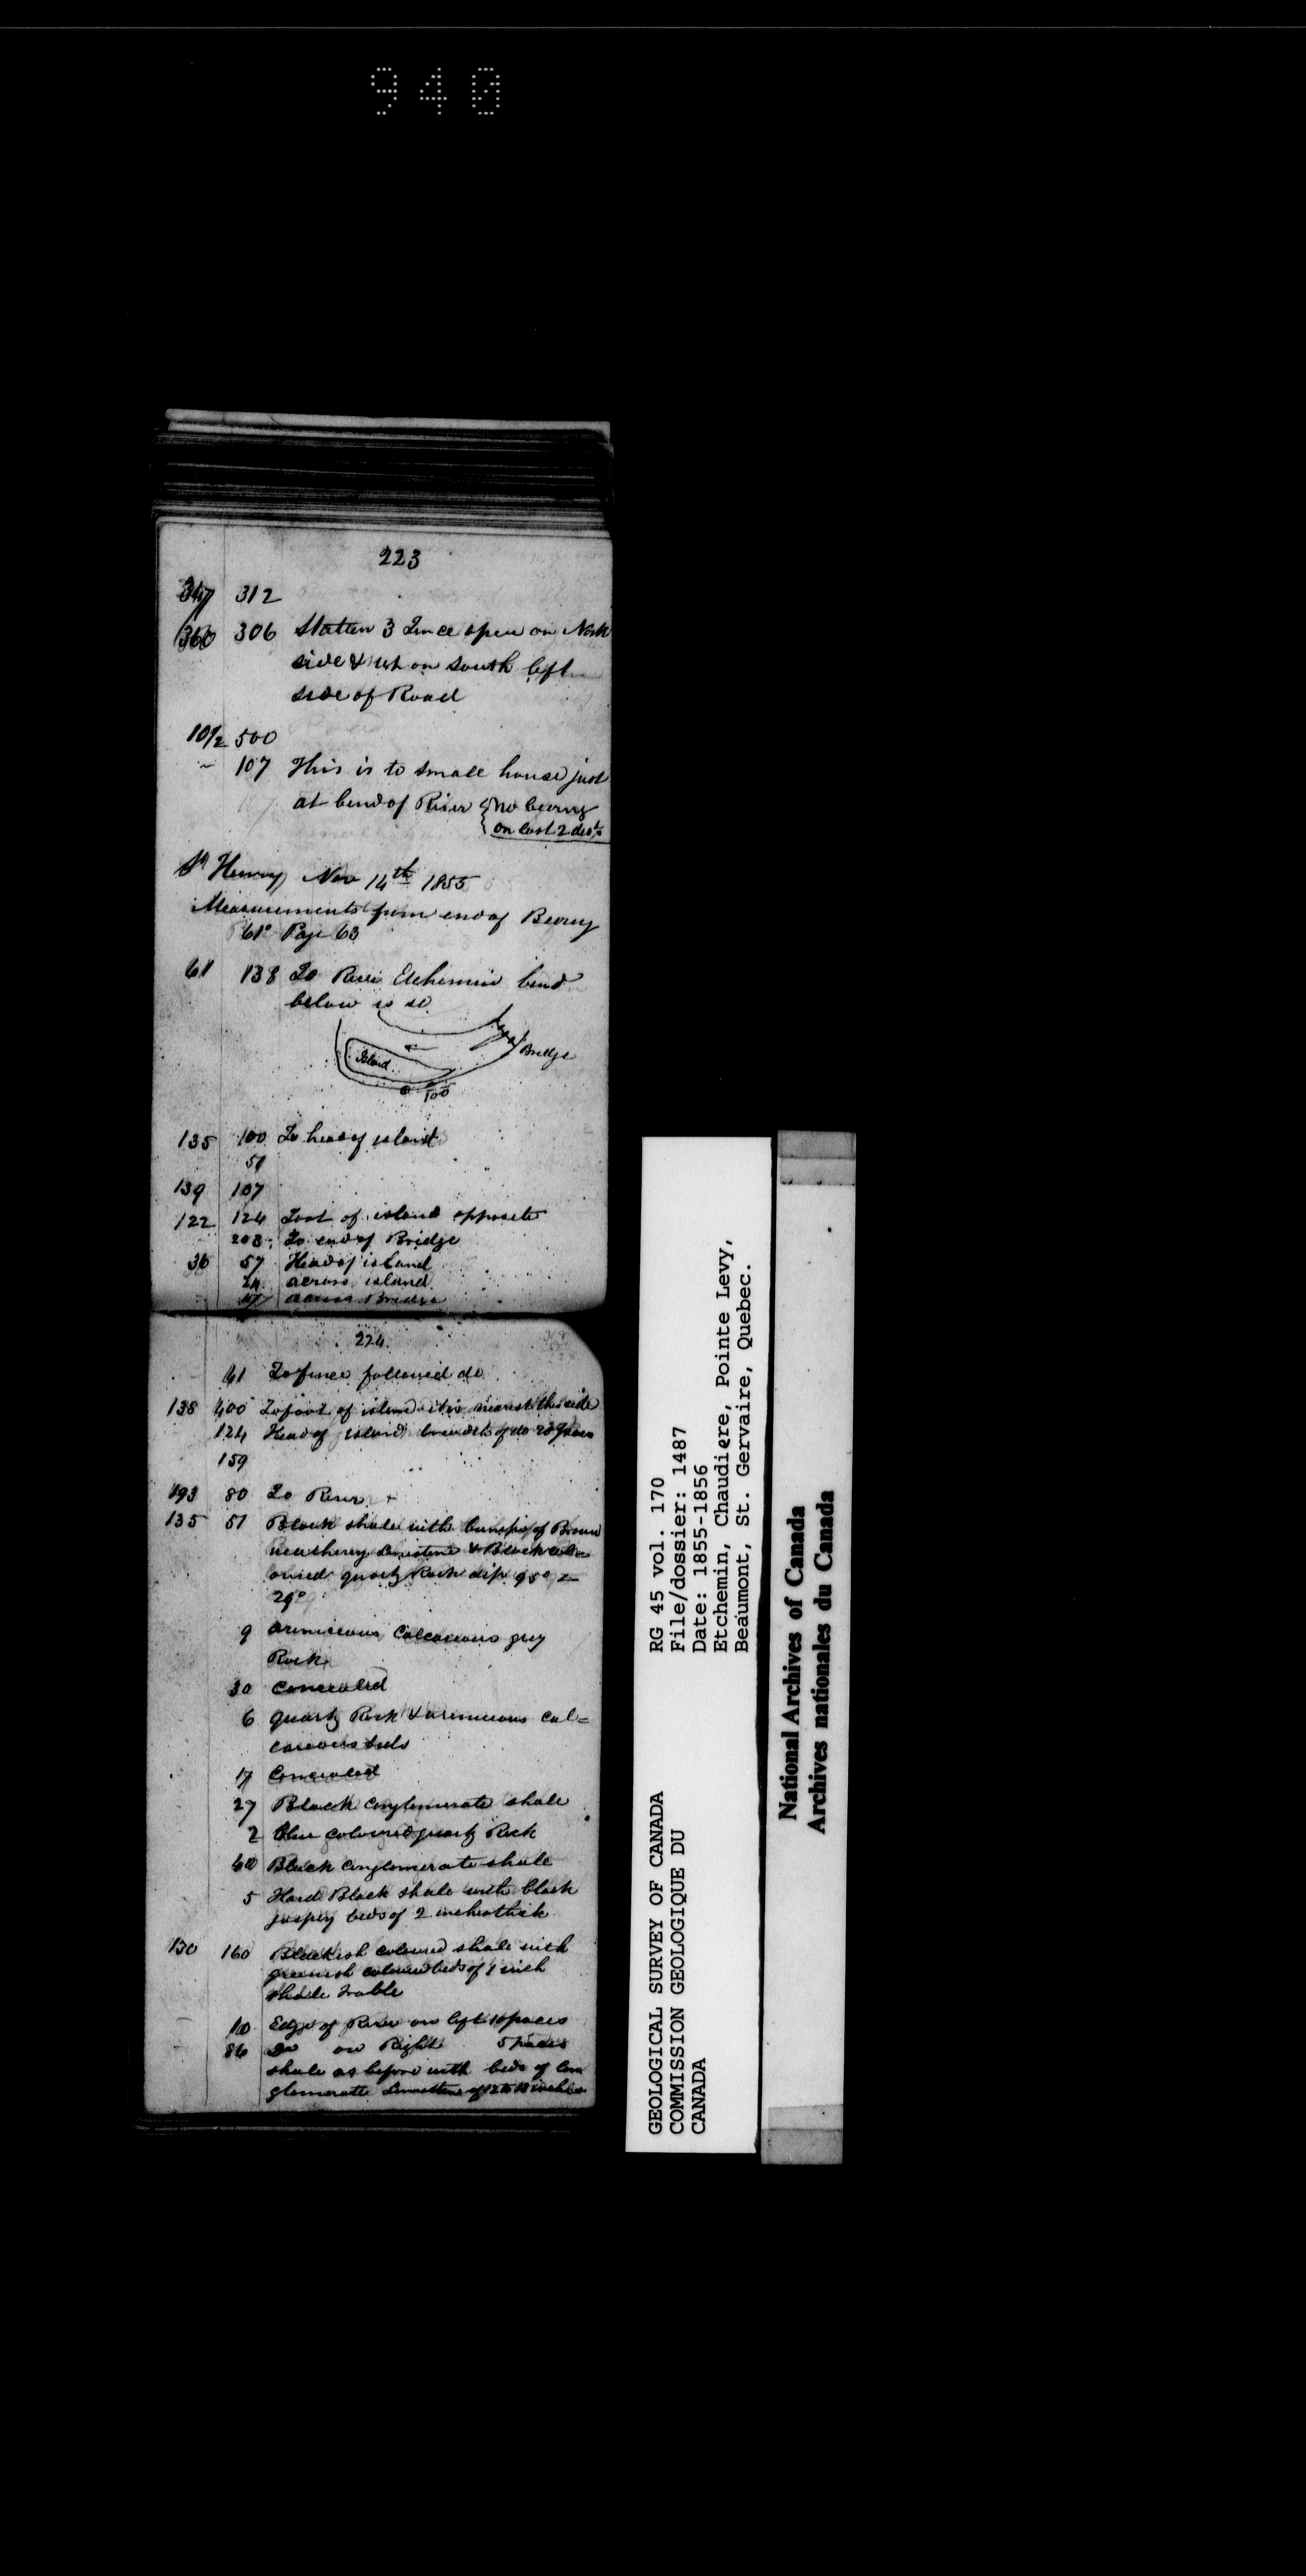 940
223
347 312
360 306 Station 3 Line open on North
side & not on South left
side of Road
10½ 500
107 This is to small house just
at bend of River { No bearing
on last 2 dists
St Henry Nov 14th 1855
Measurements from end of Bearing
61° Page 63
61 138 To River Etchemin bend
below is so
Island
Bridge
100
135 100 To head of island
51
139 107
122 124 Foot of island opposite
203 To end of Bridge
36 57 Head of island
24 across island
across Bridge
224
41 To fence followed do
138 400 To foot of island it is nearest this side
124 Head of island breadth of do paces
159
193 80 To River
135 51 Black shale with bumps of Brown
weathering Limestone & Black col=
oured quartz Rock dip 95°
29°
9 arenaceous Calcareous grey
Rock
30 Concealed
6 quartz Rock & arenaceous cal=
careous beds
17 Concealed
27 Black Conglomerate shale
2 blue coloured quartz Rock
40 Black Conglomerate shale
5 Hard Black shale with black
jaspery beds of 2 inches thick
130 160 Blackish coloured shale with
greenish coloured beds of 1 inch
shale
10 Edge of River on left 10 paces
86 Do on Right 5 paces
shale as before with beds of Con
glomerate Limestone of 12 to 18 inches
GEOLOGICAL SURVEY OF CANADA
COMMISSION GEOLOGIQUE DU
CANADA
RG 45 vol. 170
File/dossier: 1487
Date: 1855-1856
Etchemin, Chaudiere, Pointe Levy,
Beaumont, St. Gervaire, Quebec.
National Archives of Canada
Archives nationales du Canada